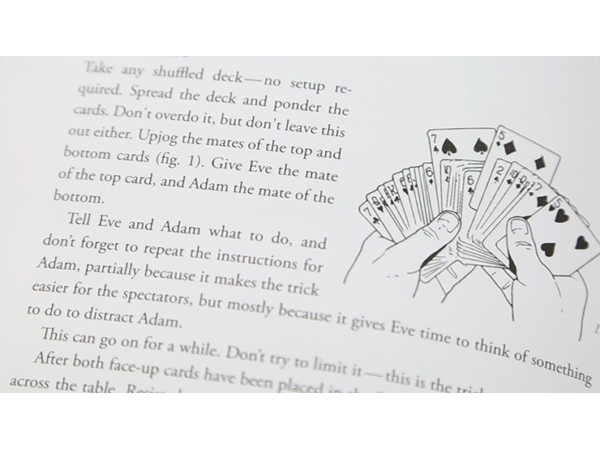 Take any shuffled deck—no setup re-
quired. Spread the deck and ponder the
cards. Don't overdo it, but don't leave this
out either. Upjog the mates of the top and
bottom cards (fig. 1). Give Eve the mate
of the top card, and Adam the mate of the
bottom.
Tell Eve and Adam what to do, and
don't forget to repeat the instructions for
Adam, partially because it makes the trick
easier for the spectators, but mostly because it gives Eve time to think of something
to do to distract Adam.
This can go on for a while. Don't try to limit it—this is the
After both face-up cards have been placed in
across the table.